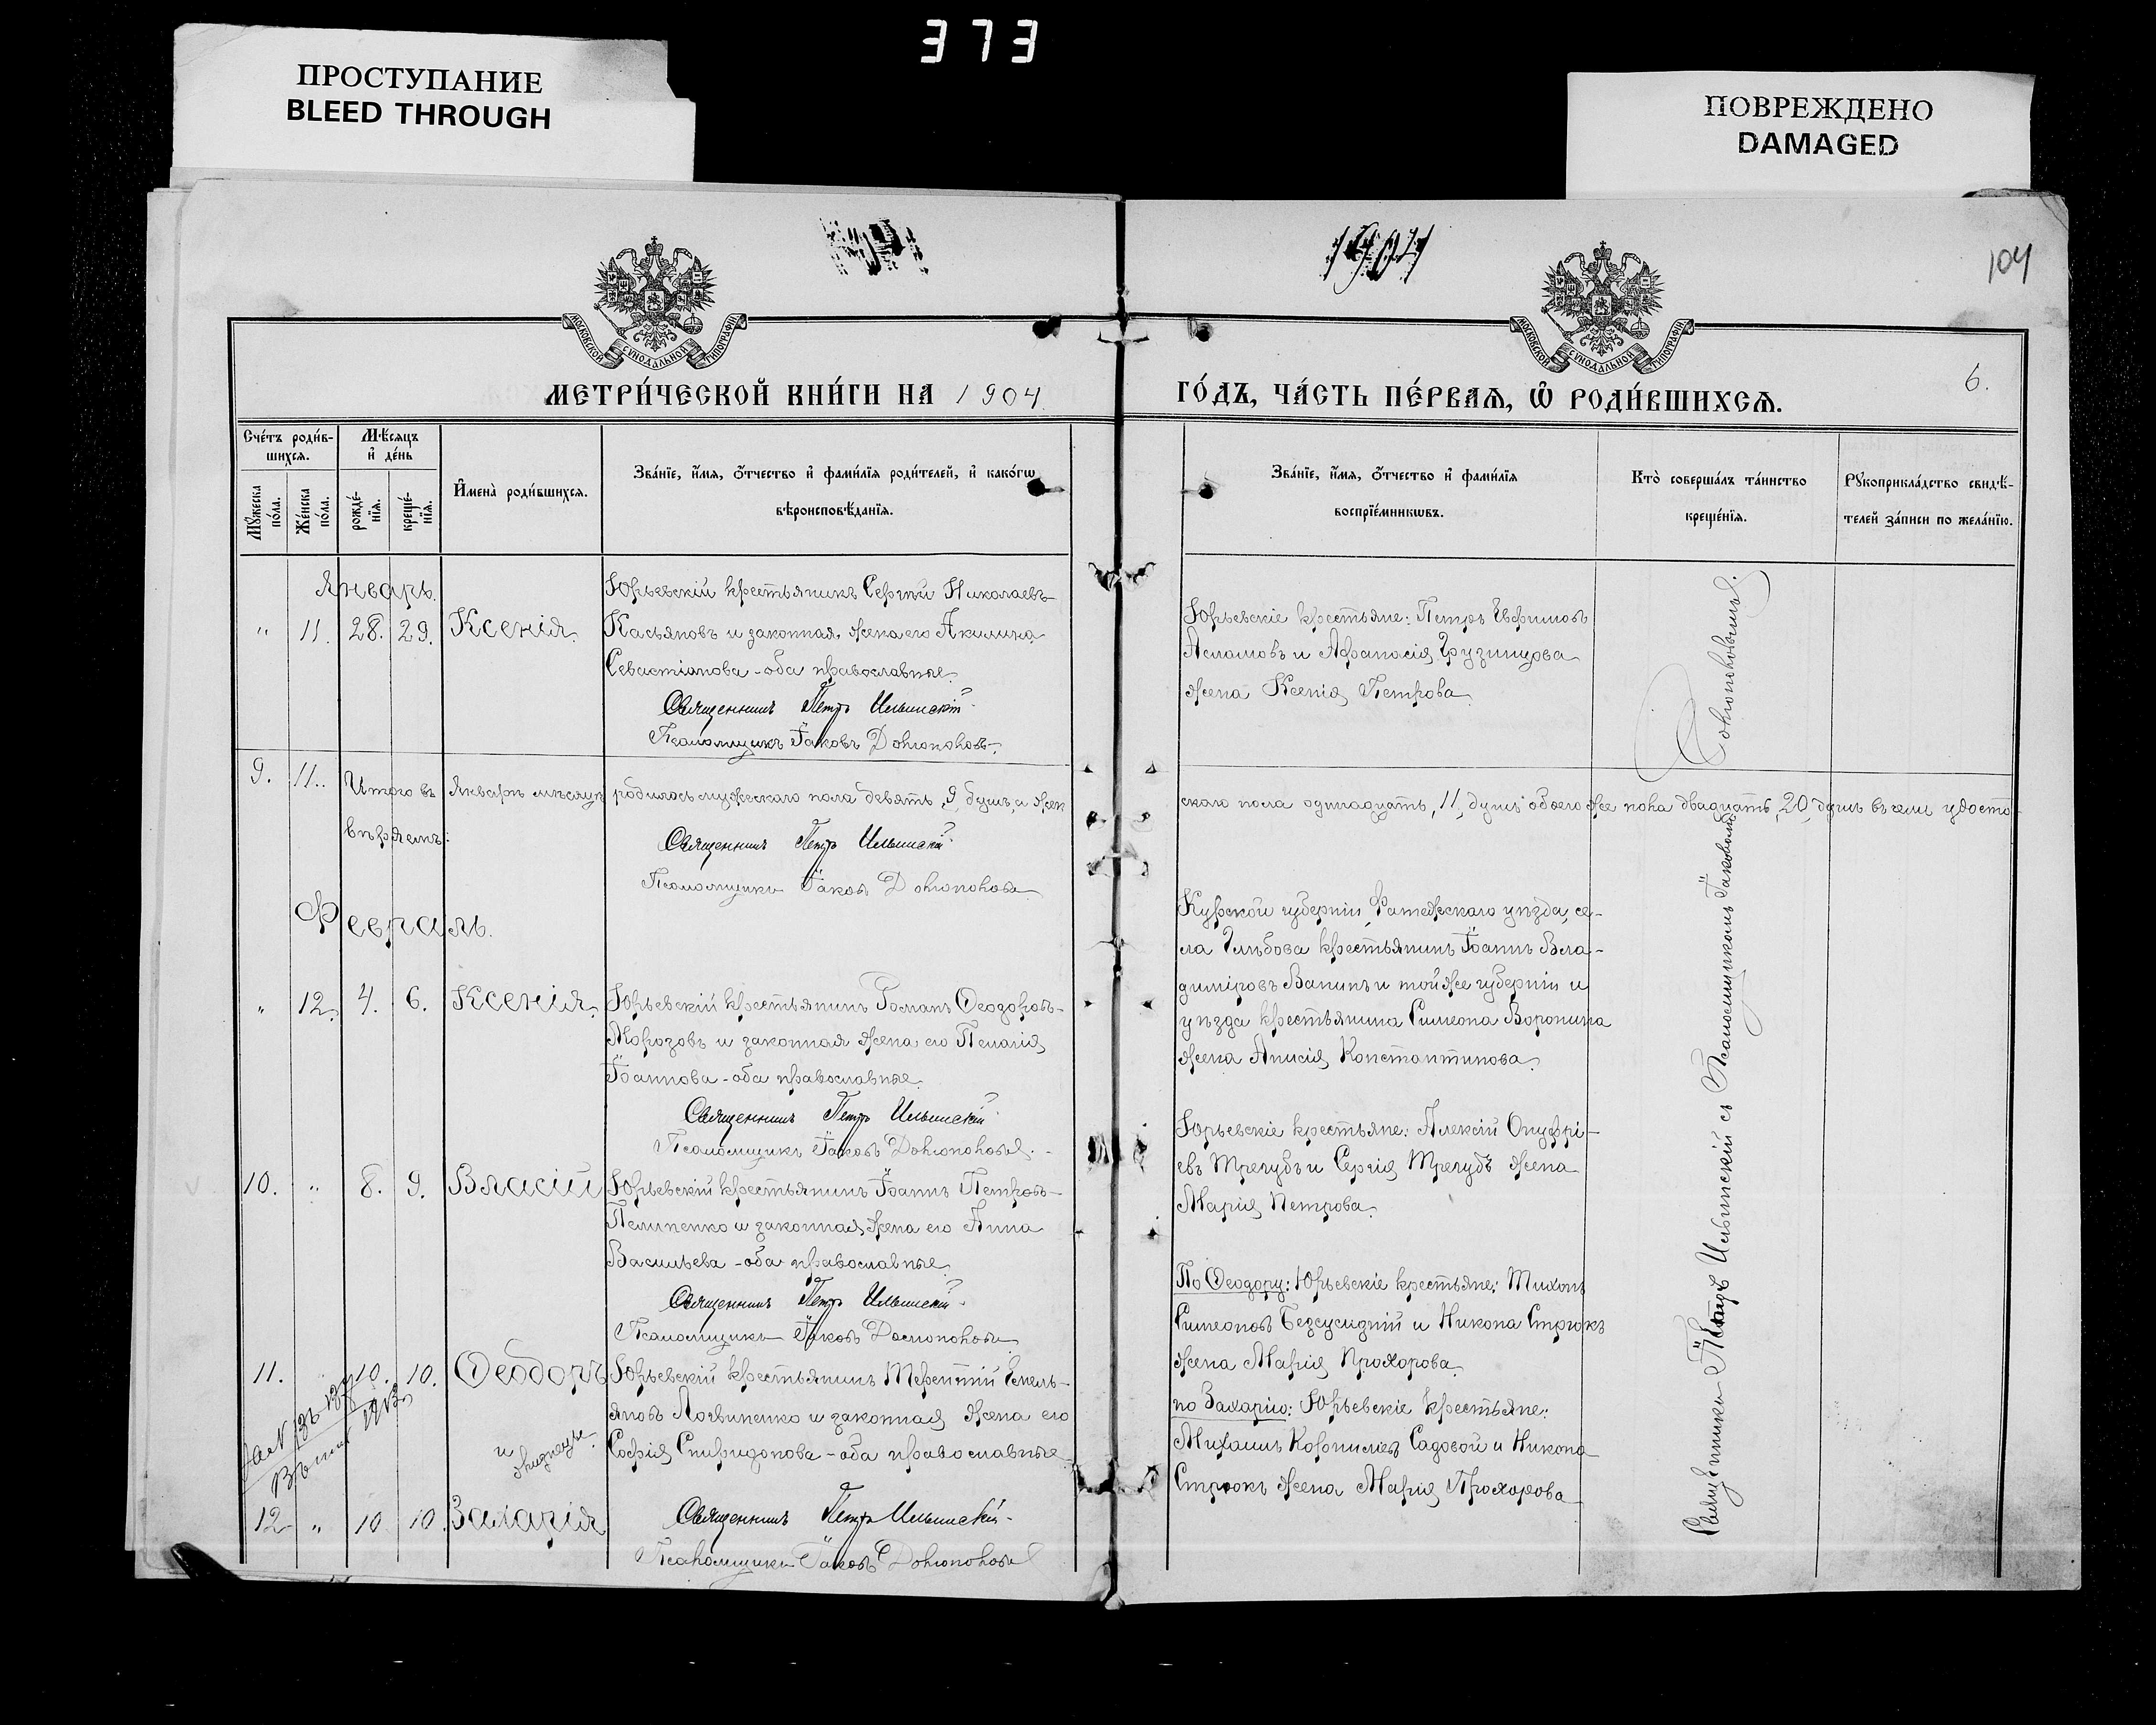 373
ПРОСТУПАНИЕ
BLEED THROUGH
ПОВРЕЖДЕНО
DAMAGED
104
6.
МОСКОВСКОЙ СѴНОДАЛЬНОЙ ТИПОГРАФІИ
МОСКОВСКОЙ СѴНОДАЛЬНОЙ ТИПОГРАФІИ
МЕТРИ́ЧЕСКОЙ КНИ́ГИ НА 1904
ГО́ДЪ, ЧА́СТЬ ПЕ́РВАѦ, Ѡ҆ РОДИ́ВШИХСѦ.
Сче́тъ роди́в-
шихсѧ.
Мꙋ́жеска по́ла.
Же́нска по́ла.
Мѣ́сѧцъ
и҆ де́нь
рожде́-
нїѧ.
креще́-
нїѧ.
И҆мена̀ роди́вшихсѧ.
Зва́нїе, и҆́мѧ, ѻ҆́тчество и҆ фами́лїѧ роди́телей, и҆ како́гѡ
вѣроисповѣ́данїѧ.
Зва́нїе, и҆́мѧ, ѻ҆́тчество и҆ фами́лїѧ
воспрїе́мникѡвъ.
Кто̀ соверша́лъ та́инство
креще́нїѧ.
Рꙋкоприкла́дство свидѣ́-
телей за́писи по жела́нїю.
Январь.
" 11. 28. 29. Ксенія.
Юрьевскій крестьянинъ Сергѣй Николаевъ
Касьяновъ и законная жена его Акилина
Севастіанова - оба православные.
Священникъ Петръ Ильинскій
Псаломщикъ Іаковъ
Юрьевскіе крестьяне: Петръ Евфимовъ
и Афанасія Грузинцова
жена Ксенія Петрова.
9. 11. Итого въ Январѣ мѣсяцѣ родилось мужескаго пола девять, 9, душъ, а жен
скаго пола одинадцать, 11, душъ обоего же пола двадцать, 20, душъ въ чемъ удосто-
вѣряемъ:
Священникъ Петръ Ильинскій
Псаломщикъ Іаковъ
Февраль.
" 12. 4. 6. Ксенія.
Юрьевскій крестьянинъ Романъ Ѳеодоровъ
Морозовъ и законная жена его Пелагія
Іоаннова - оба православные.
Священникъ Петръ Ильинскій
Псаломщикъ Іаковъ
Курской губерніи, Фатежскаго уѣзда, се-
ла Глѣбова крестьянинъ Іоаннъ Вла-
диміровъ Ванинъ и той же губерніи и
уѣзда крестьянина Симеона Воронина
жена Анисія Константинова.
10. " 8. 9. Власій
Юрьевскій крестьянинъ Іоаннъ Петровъ
Пелипенко и законная жена его Анна
Васильева - оба православные.
Священникъ Петръ Ильинскій
Псаломщикъ Іаковъ
Юрьевскіе крестьяне: Алексій Онуфрі-
евъ Трегубъ и Сергія Трегубъ жена
Марія Петрова.
11. 10. 10. Ѳеодоръ
и
близнецы.
Юрьевскій крестьянинъ Терентій Емель-
яновъ Логвиненко и законная жена его
Софія Спиридонова - оба православные.
12. " 10. 10. Захарія
Священникъ Петръ Ильинскій
Псаломщикъ Іаковъ
По Ѳеодору: Юрьевскіе крестьяне: Тихонъ
Симеоновъ и Никона Стрюкъ
жена Марія Прохорова.
по Захарію: Юрьевскіе крестьяне:
Михаилъ Корниліевъ Садовой и Никона
Стрюкъ жена Марія Прохорова
Священникъ Петръ Ильинскій съ Псаломщикомъ Іаковомъ